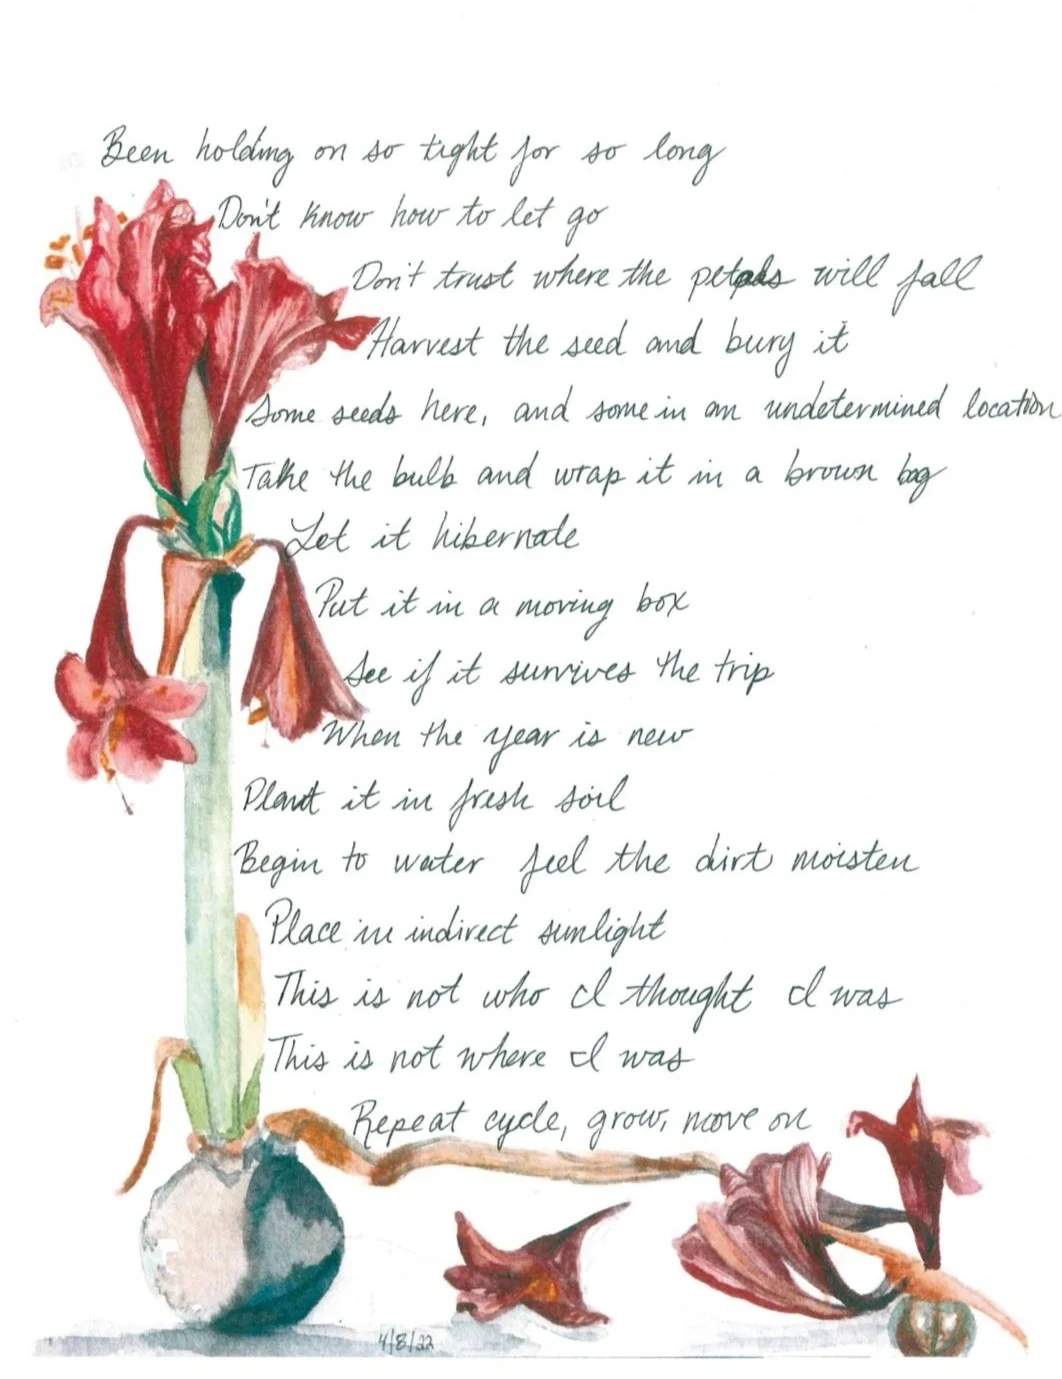 Been holding on so tight for so long
Don't know how to let go
Don't trust where the petals will fall
Harvest the seed and bury it
Some seeds here, and some in an undetermined location
Take the bulb and wrap it in a brown bag
Let it hibernate
Put it in a moving box
See if it survives the trip
When the year is new
Plant it in fresh soil
Begin to water feel the dirt moisten
Place in indirect sunlight
This is not who I thought I was
This is not where I was
Repeat cycle, grow, move on
4/8/22